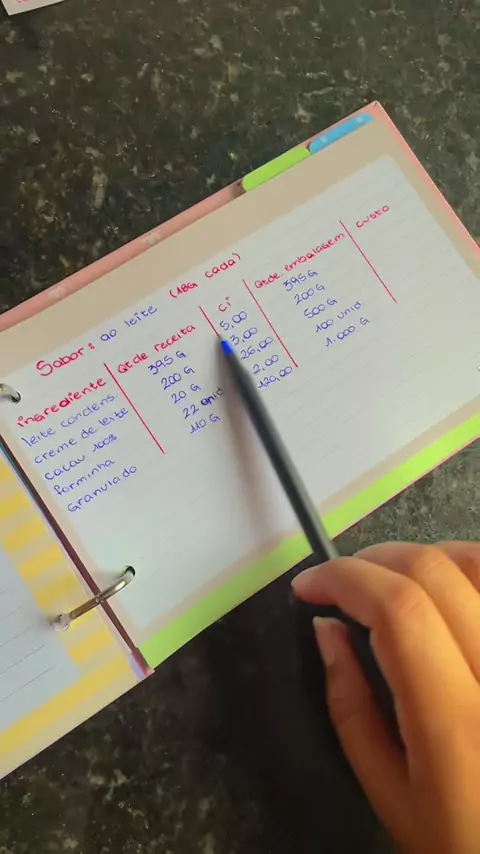 Sabor: ao leite (18G cada)
ingrediente Qtde receita Ci Qtde. embalagem custo
leite condens. 395 G 5,00 395 G
creme de leite 200 G 3,00 200 G
cacau 100% 20 G 26,00 500 G
forminha 22 unid 2,00 100 unid.
Granulado 110 G 120,00 1.000 G